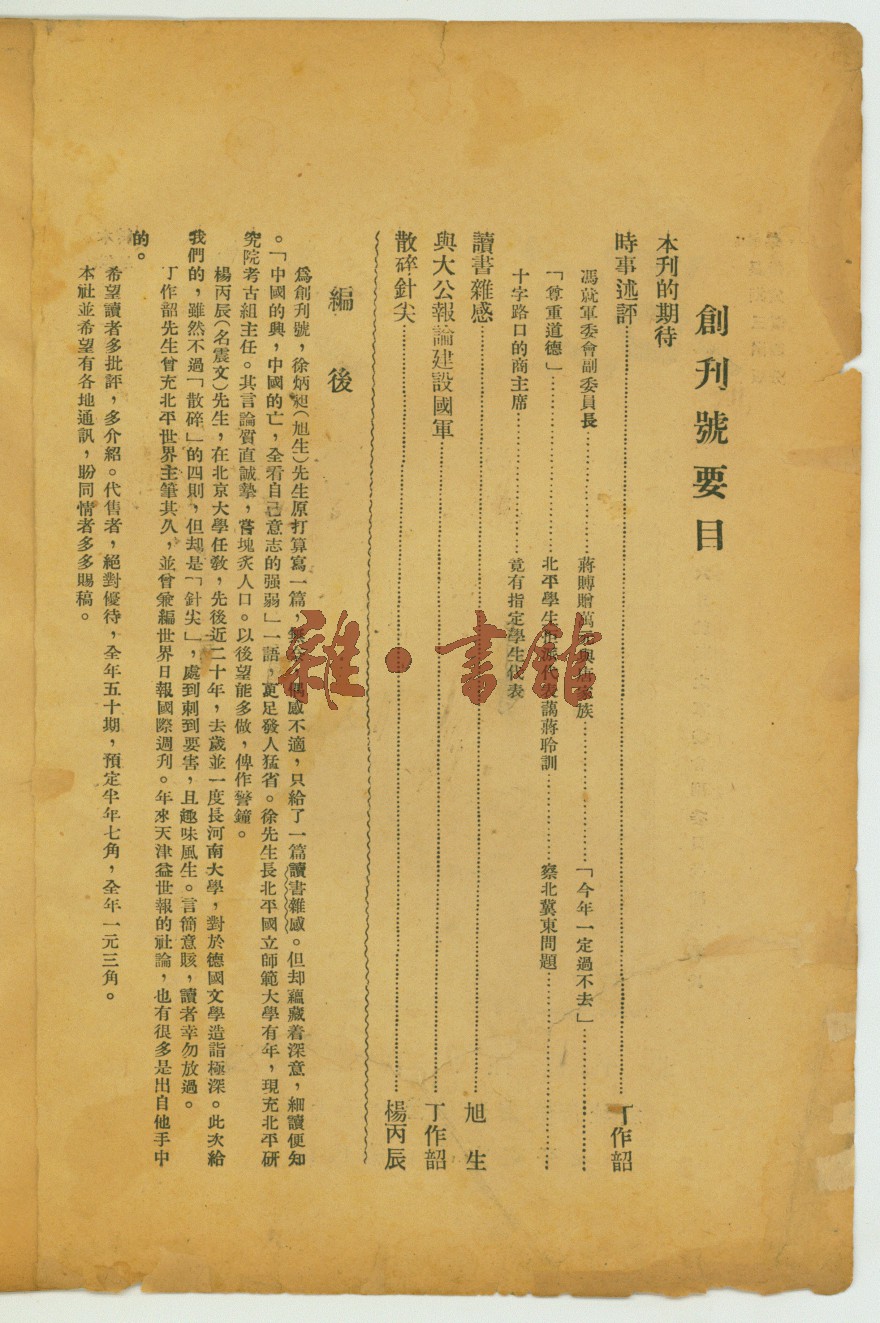 創刊號要目
本刊的期待
時事述評…………丁作韶
馮就軍委會副委員長…………蔣賻贈萬元與唐家族…………「今年一定過不去」…………
「尊重道德」…………北平學生也派代表謁蔣聆訓…………察北冀東問題…………
十字路口的商主席…………竟有指定學生代表
讀書雜感…………旭生
與大公報論建設國軍…………丁作韶
散碎針尖…………楊丙辰
編後
爲創刊號，徐炳昶(旭生)先生原打算寫一篇，無奈偶感不適，只給了一篇讀書雜感。但却蘊藏着深意，細讀便知
。「中國的興，中國的亡，全看自己意志的强弱」一語，更足發人猛省。徐先生長北平國立師範大學有年，現充北平研
究院考古組主任。其言論質直誠摯，嘗塊炙人口。以後望能多做，俾作警鐘。
楊丙辰(名震文)先生，在北京大學任敎，先後近二十年，去歲並一度長河南大學，對於德國文學造詣極深。此次給
我們的，雖然不過「散碎」的四則，但却是「針尖」，處到刺到要害，且趣味風生。言簡意賅，讀者幸勿放過。
丁作韶先生曾充北平世界主筆其久，並曾兼編世界日報國際週刊。年來天津益世報的社論，也有很多是出自他手中
的。
希望讀者多批評，多介紹。代售者，絕對優待，全年五十期，預定半年七角，全年一元三角。
本社並希望有各地通訊，盼同情者多多賜稿。
雜·書館